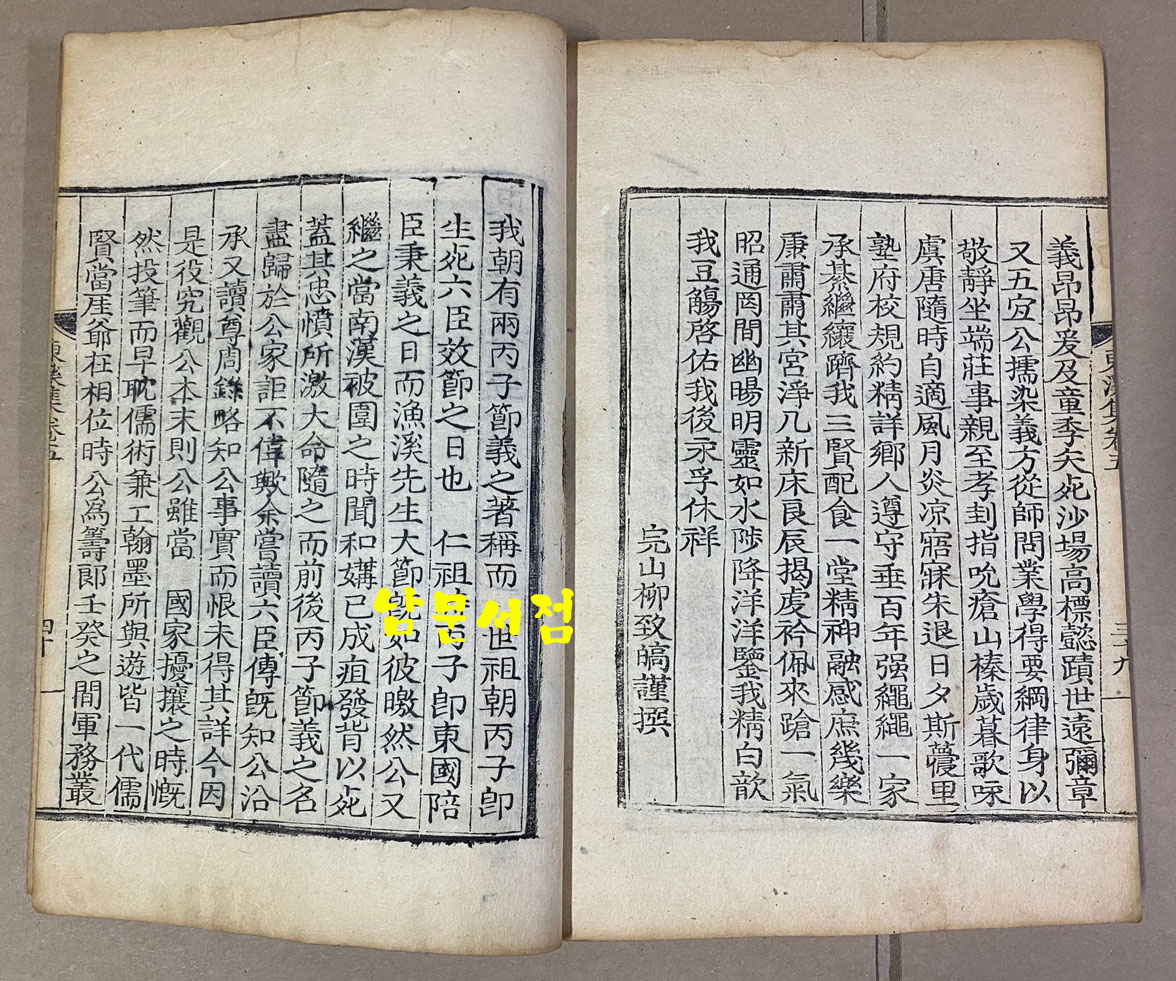 東溪集卷五 三十九
義昂昂爰及童季夭死沙場高標懿蹟世遠彌章
又五宜公擩染義方從師問業學得要綱律身以
敬靜坐端莊事親至孝刲指吮瘡山榛歲暮歌咏
虞唐隨時自適風月炎凉寤寐朱退日夕斯薆里
塾府校規約精詳鄉人遵守垂百年强繩繩一家
承綦繼纕躋我三賢配食一堂精神融感庶幾樂
康肅肅其宮淨几新床良辰揭虔衿佩來蹌一氣
昭通罔間幽暘明靈如水陟降洋洋鑒我精白歆
我豆觴啓佑我後永孚休祥
完山柳致皜謹撰
我朝有兩丙子節義之著稱而 世祖朝丙子卽
生死六臣效節之日也 仁祖丙子卽東國陪
臣秉義之日而漁溪先生大節旣如彼暾然公又
繼之當南漢被圍之時聞和媾已成疽發背以死
蓋其忠憤所激大命隨之而前後丙子節義之名
盡歸於公家詎不偉歟余嘗讀六臣傳旣知公沿
承又讀尊周錄略知公事實而恨未得其詳今因
是役究觀公本末則公雖當 國家擾攘之時慨
然投筆而早耽儒術兼工翰墨所與遊皆一代儒
賢當厓爺在相位時公爲籌郞壬癸之間軍務叢
東溪集卷五 四十
남문서점